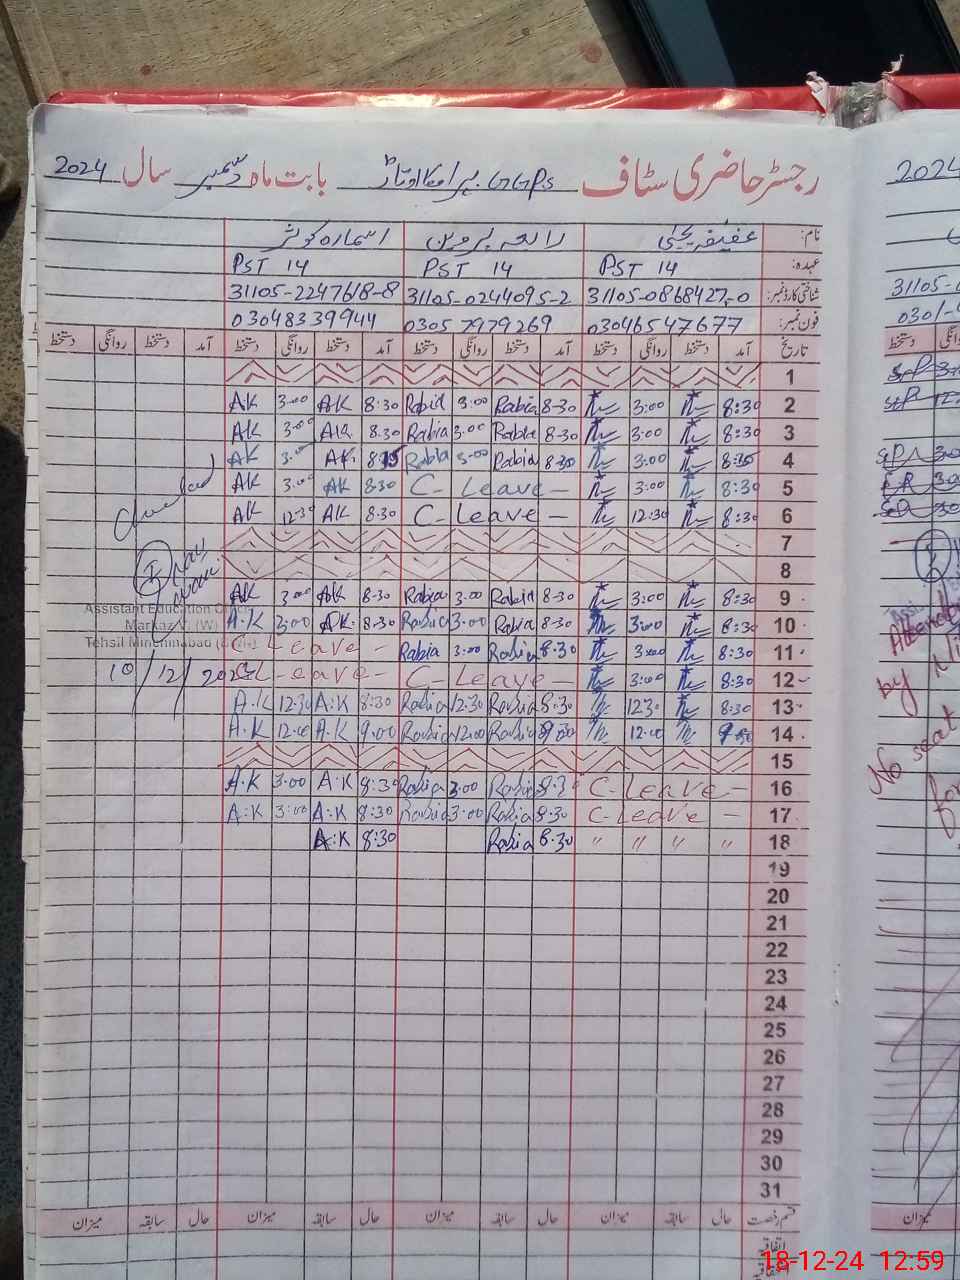 رجسٹر حاضری سٹاف GGPS بابت ماہ دسمبر سال 2024
نام: عفیفہ یحیٰ رابعہ پروین اسمارہ کوثر
عہدہ: PST 14 PST 14 PST 14
شناختی کارڈ نمبر: 31105-0868427-0 31105-0244095-2 31105-2247618-8
فون نمبر: 03046547677 03057979269 03048339944
تاریخ آمد دستخط روانگی دستخط آمد دستخط روانگی دستخط آمد دستخط روانگی دستخط آمد دستخط روانگی دستخط
1
2 8:30 3:00 8-30 Rabia 3:00 Rabia 8-30 AK 3:00 AK
3 8:30 3:00 8-30 Rabia 3:00 Rabia 8.30 AK 3:00 AK
4 8:15 3:00 8-30 Rabia 3:00 Rabia 8:15 AK 3:00 AK
5 8:30 3:00 C-Leave - 8:30 AK 3:00 AK
6 8:30 12:30 C-Leave - 8.30 AK 12:30 AK
7
8
9 8:30 3:00 8-30 Rabia 3:00 Rabia 8-30 AK 3:00 AK
10 8:30 3:00 8-30 Rabia 3:00 Rabia 8-30 AK 3:00 A.K
11 8:30 3:00 8:30 Rabia 3:00 Rabia C Leave -
12 8:30 3:00 C-Leave C-Leave -
13 8:30 12:30 8:30 Rabia 12:30 Rabia 8:30 A:K 12:30 A.K
14 12:00 Rabia 12:00 Rabia 9:00 A.K 12:00 A.K
15
16 C-Leave - 8:30 Rabia 3:00 Rabia 8:30 A.K 3:00 A.K
17 C-Leave - 8:30 Rabia 3:00 Rabia 8:30 A:K 3:00 A:K
18 " " " " 8:30 Rabia 8:30 A:K
19
20
21
22
23
24
25
26
27
28
29
30
31
قسم رخصت حال سابقہ میزان حال سابقہ میزان حال سابقہ میزان حال سابقہ میزان
اتفاقیہ
Checked
Assistant Education Officer
Markaz (W)
Tehsil Minchinabad
10/12/2024
2024
No seat
by
18-12-24 12:59